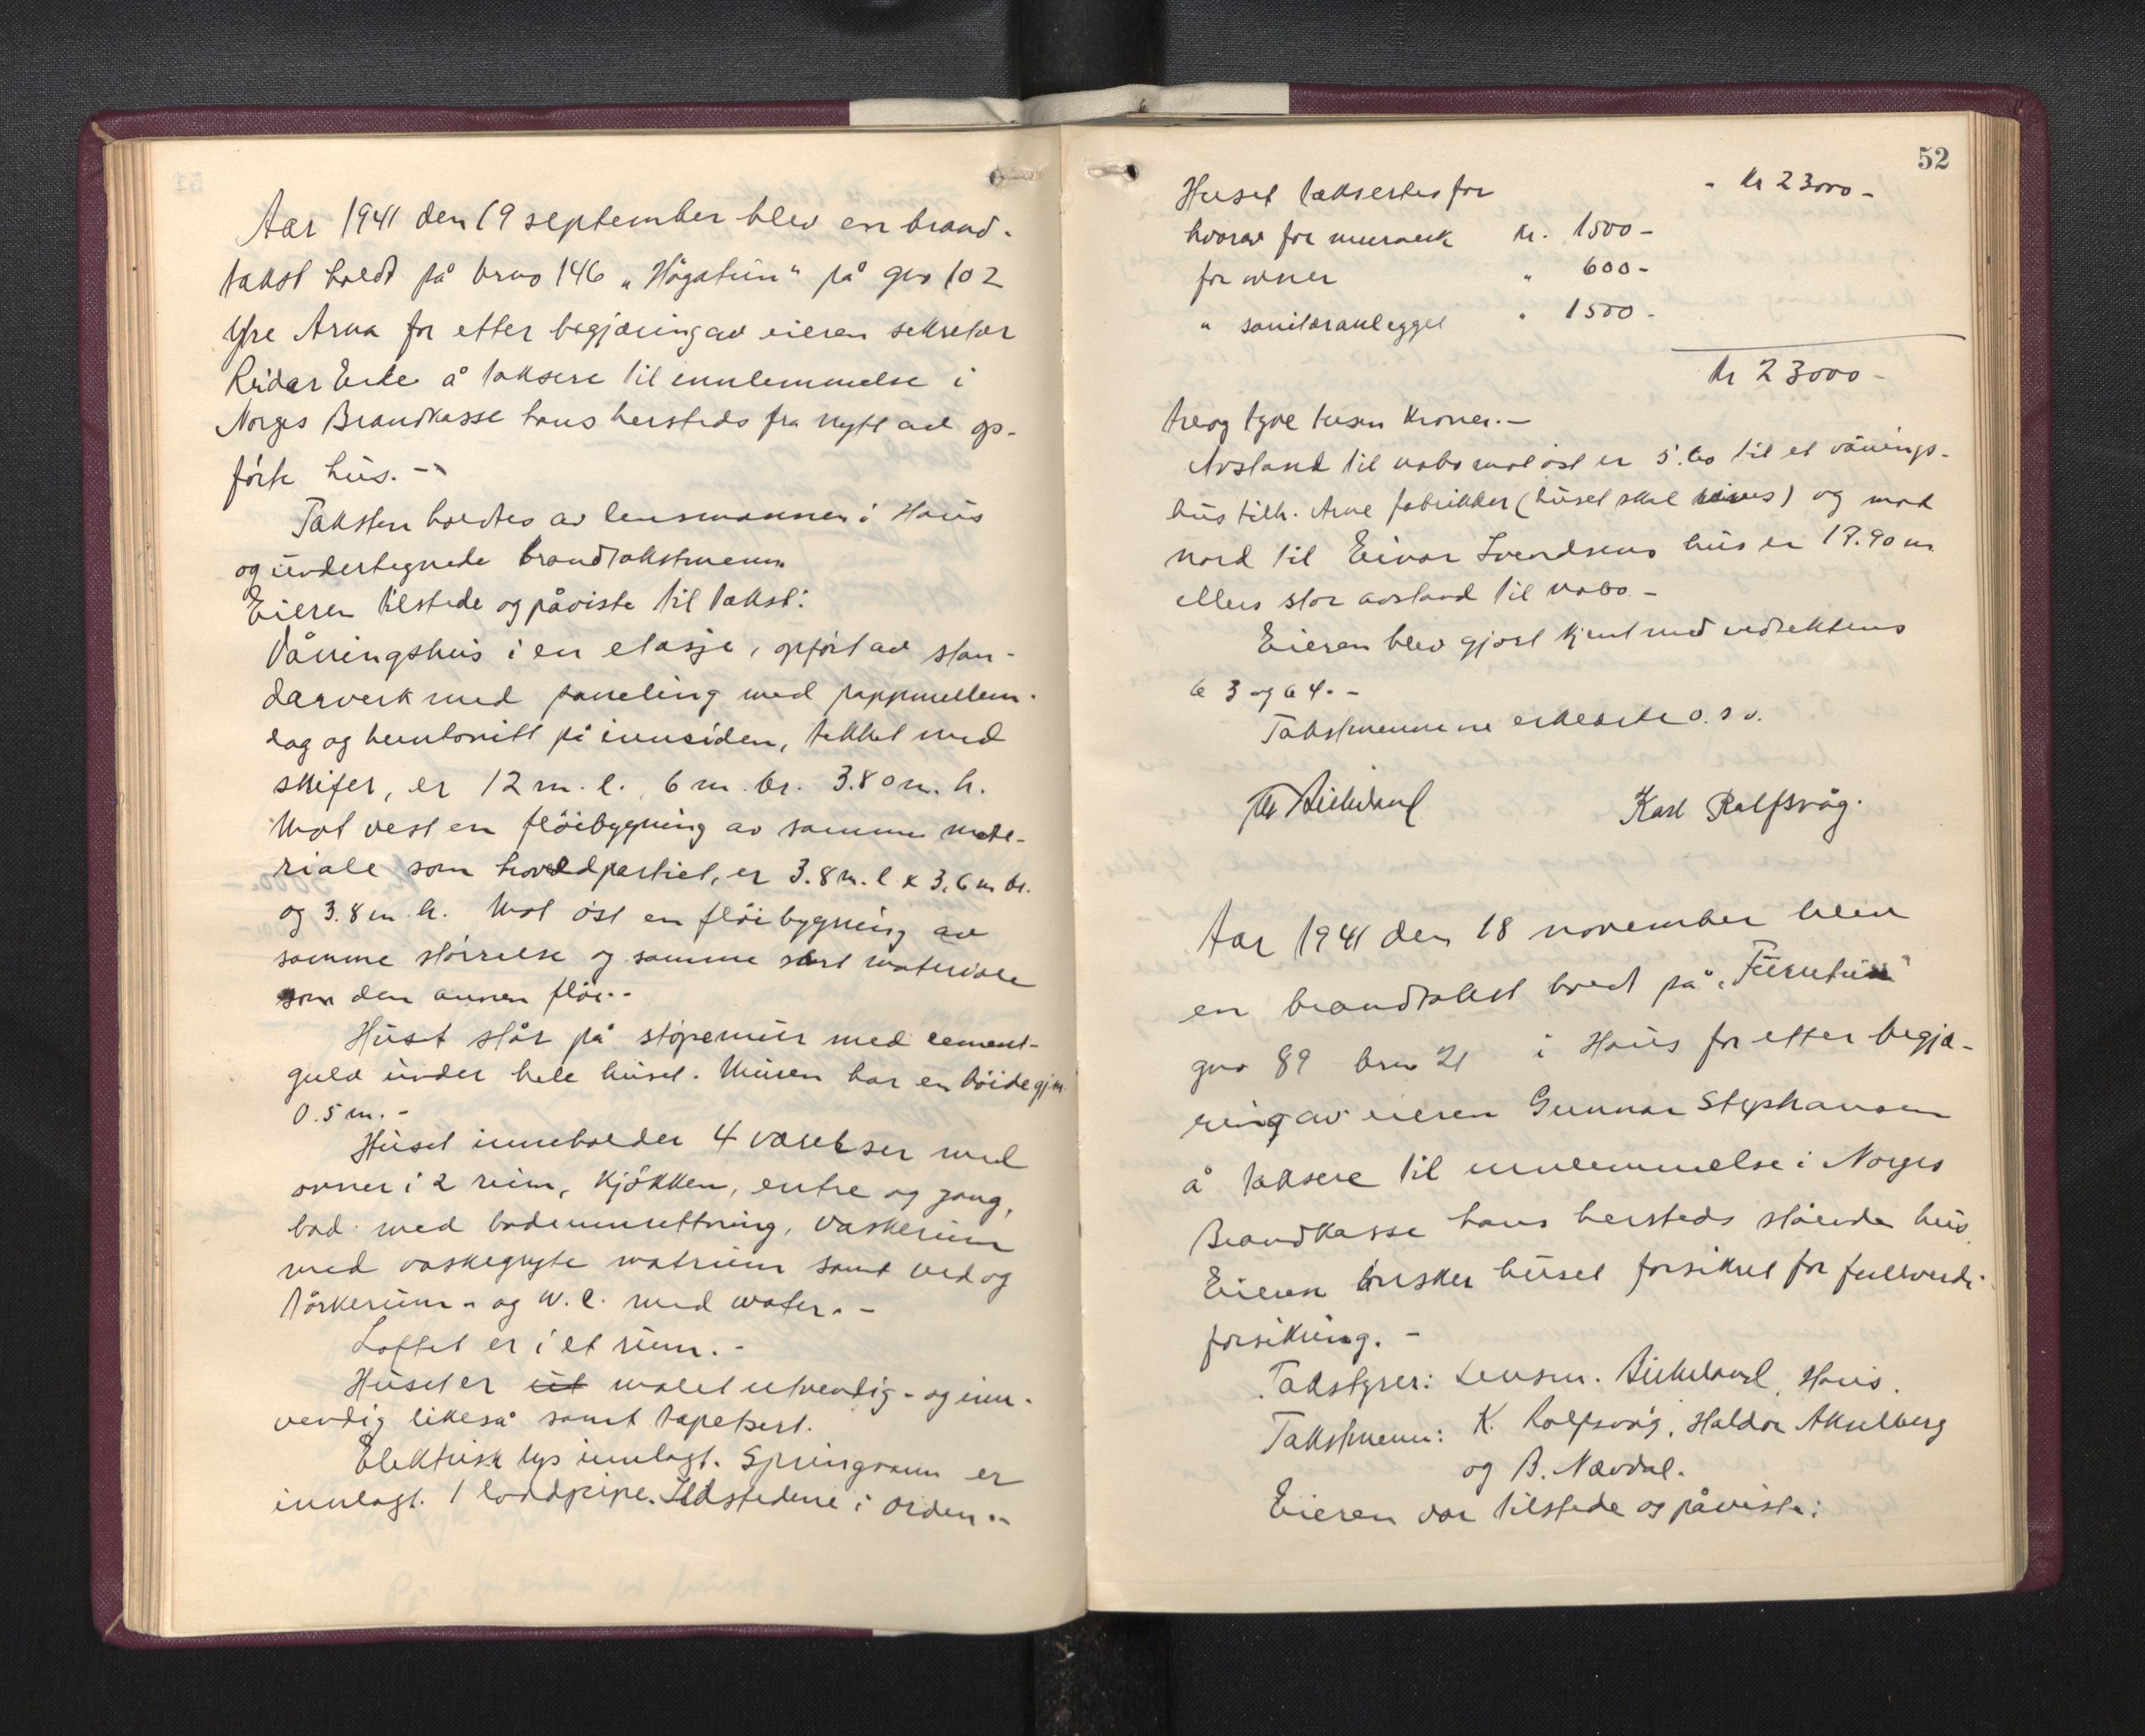 Aar 1941 den 19 september blev en brand-
takst holdt på brno 146 „Högatun" på gno 102
Ytre Arna for etter begjæring av eieren sekretær
Reidar Eide å taksere til innlemmelse i
Norges Brandkasse hans hersteds fra nytt av op-
förte hus. -
Taksten holdtes av lensmannen i Haus
og undertegnede brandtakstmenn.
Eieren tilstede og påviste til takst:
Våningshus i en etasje, opfört av stan-
darverk med paneling med pappmellem-
lag og huntonitt på innsiden, tekket med
skifer, er 12 m. l. 6 m. br. 3.80 m. h.
Mot vest en flöibygning av samme mate-
riale som hovedpartiet, er 3.8 m. l x 3.6 m br.
og 3.8 m. h. Mot öst en flöibygning av
samme störrelse og samme slags materiale
som den annen flöi.-
Huset står på stöpemur med cement-
gulv under hele huset. Muren har en höide gj.m.
0.5 m. -
Huset inneholder 4 værelser med
ovner i 2 rum, kjökken, entre og gang,
bad med badeinnrettning, vaskerum
med vaskegryte matrum samt ved og
törkerum - og W.C. med water. -
Loftet er i et rum. -
Huset er ut malet utvendig - og inn-
vendig likeså samt tapetsert.
Elektrisk lys innlagt. Springvann er
innlagt. 1 loddpipe. Ildstedene i orden.-
52
Huset taksertes for - kr 23000 -
hvorav for murverk kr. 1500 -
for ovner " 600 -
" sanitæranlegget " 1500 -
kr 23000 -
treog tyve tusen kroner. -
Avstand til nabo mot öst er 5.60 til et vånings-
hus tilh. Arne fabrikker (huset skal rives) og mot
nord til Einar Svendsens hus er 18.90 m
ellers stor avstand til nabo -
Eieren blev gjort kjent med vedtektens
63 og 64. -
Takstmennene erklærte o.s.v.
Birkeland Karl Rolfsvåg.
Aar 1941 den 18 november blev
en brandtakst holdt på „Furutun"
gno 89 brno 21 i Haus for etter begjæ-
ring av eieren Gunnar Stephansen
å taksere til innlemmelse i Norges
Brandkasse hans hersteds stående hus.
Eieren önsker huset forsikret for fullverdi-
forsikring. -
Takstyrer: Lensm. Birkeland, Haus.
Takstmenn: K. Rolfsvåg, Haldor Akselberg
og B. Nævdal.
Eieren var tilstede og påviste: